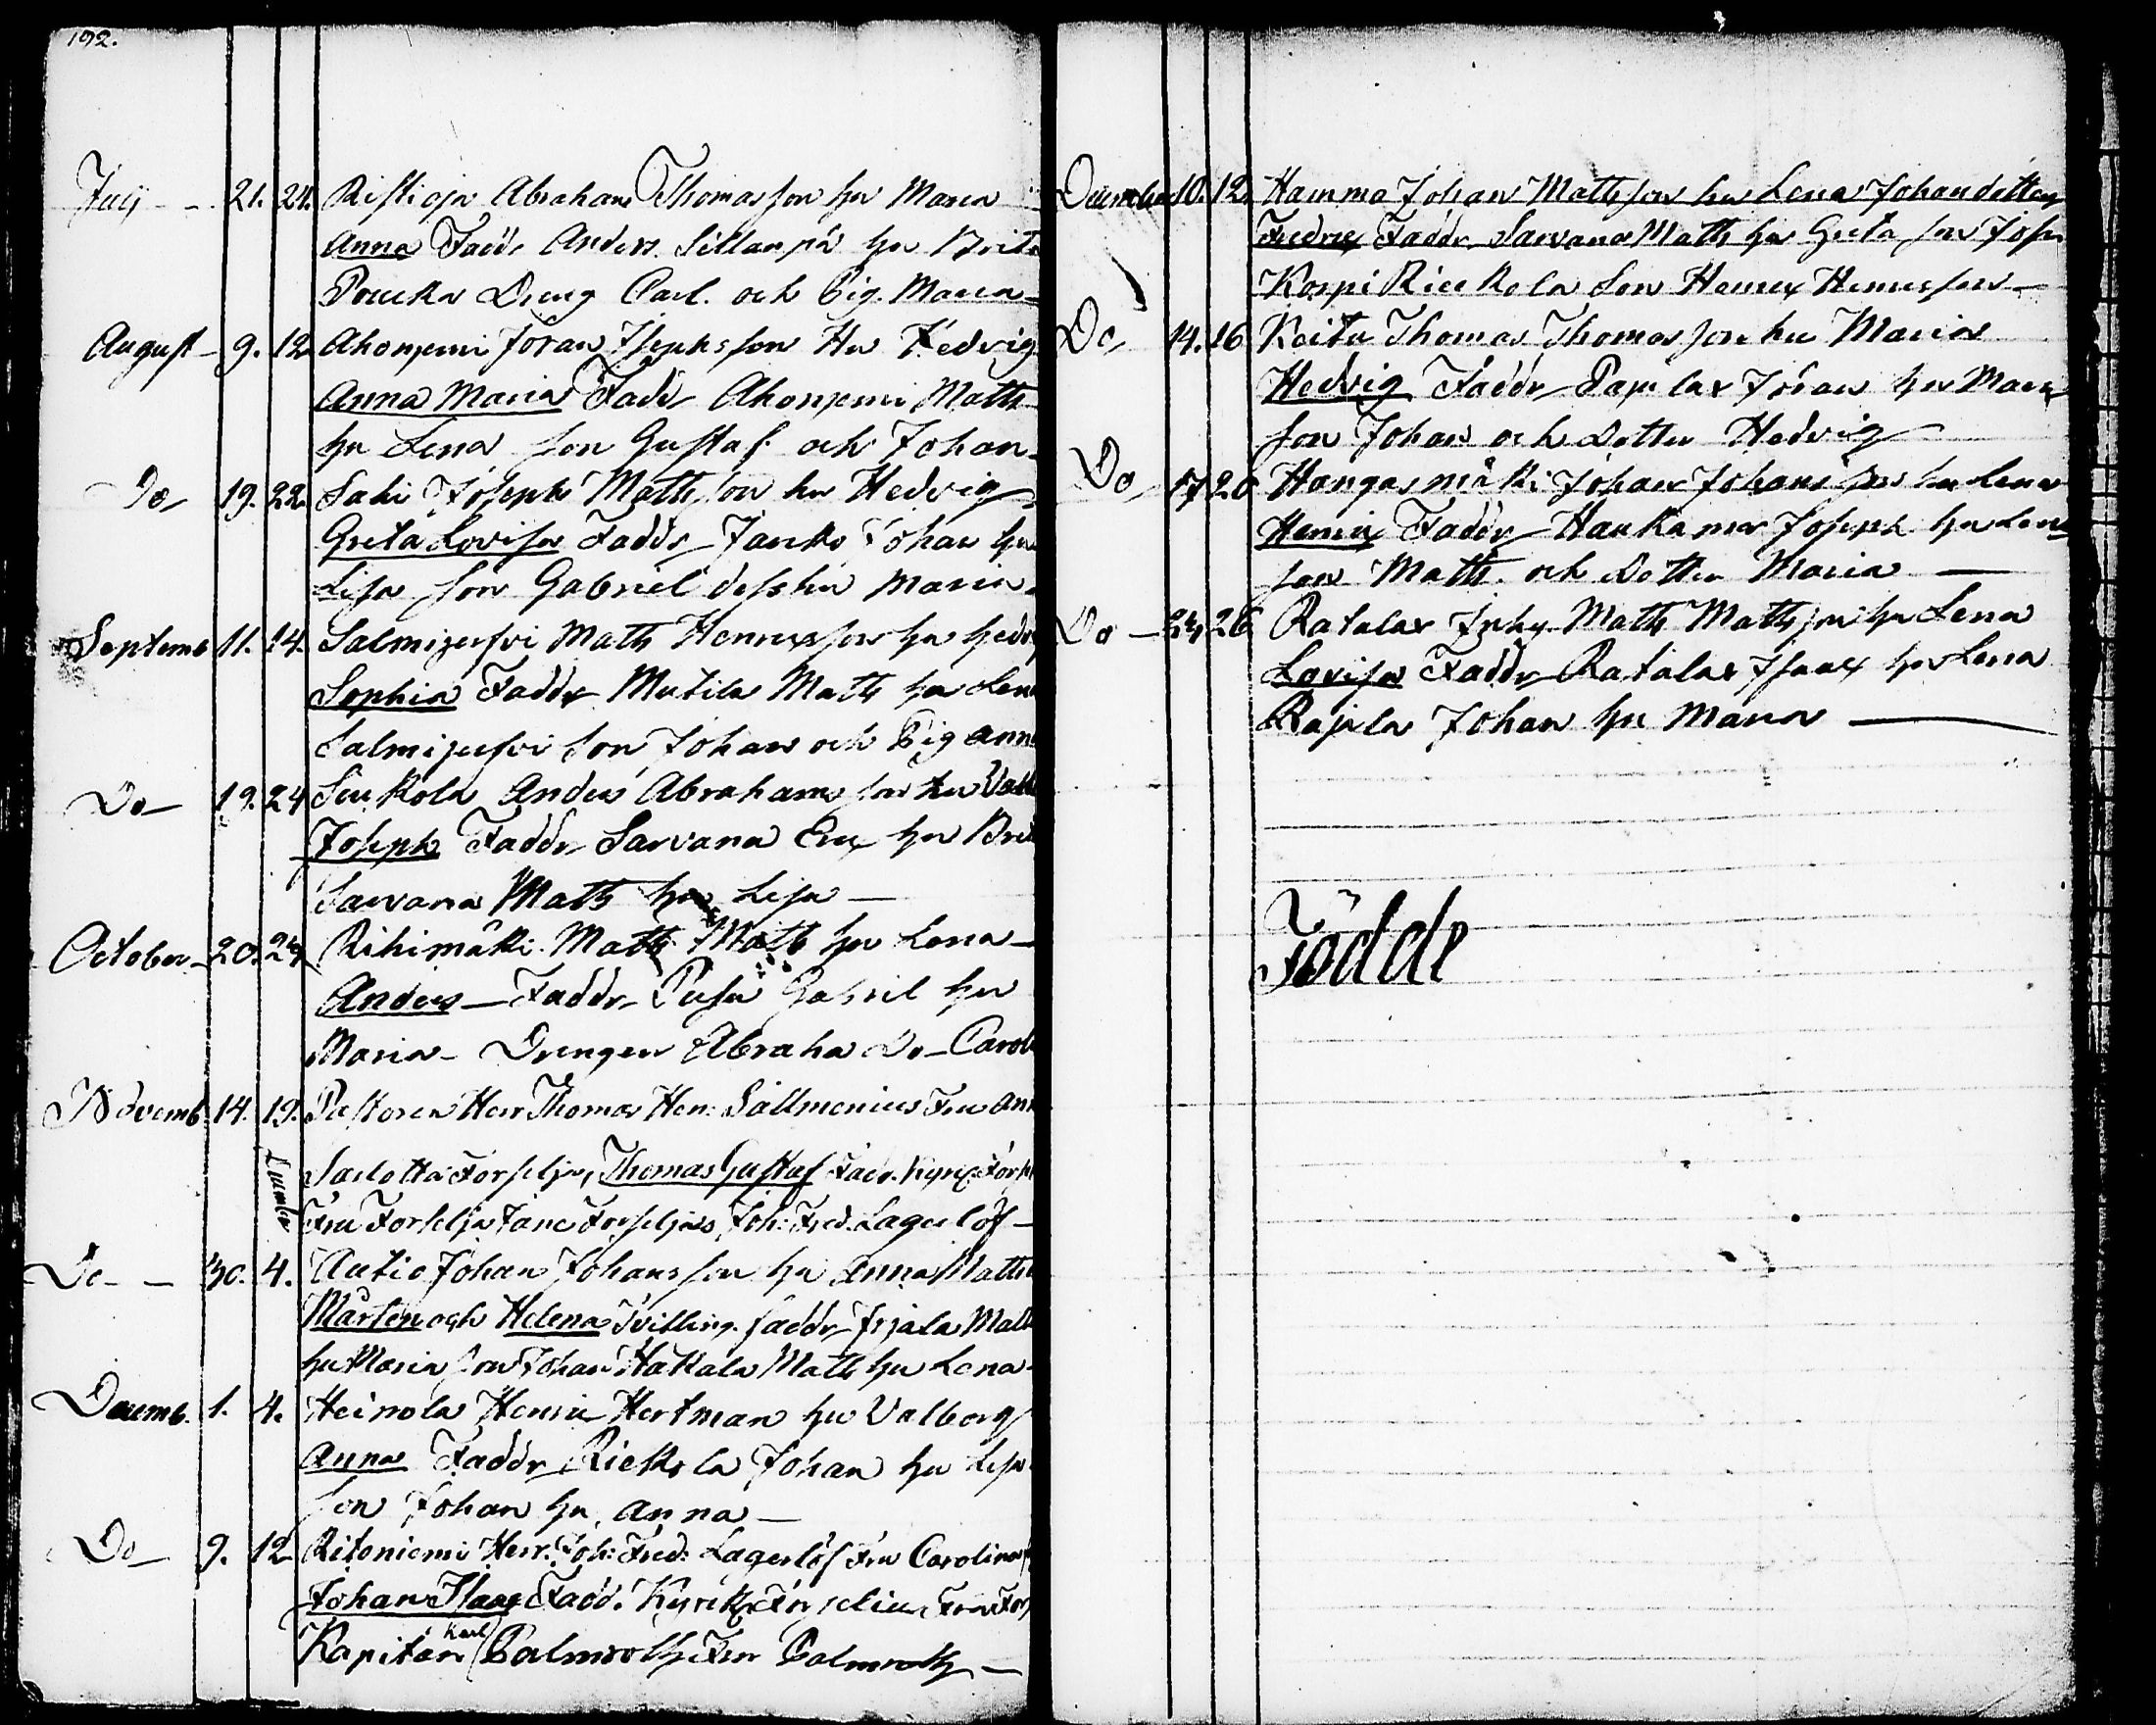 192.
July - 21. 24. Ristioja Abraham Thomasson hu Maria
Anna Fadd. Anders Sillanpä hu Brita
Poucka Dreng Carl. och Pig. Maria
August - 9. 12 Ahonjemi Joran Josephsson Hu Hedvig
Anna Maria Fadd Ahonjemi Matts
hu Lena son Gustaf och Johan
Do 19. 22. Saki Joseph Mattsson hu Hedvig
Greta Lovisa Faddr Jancko Johan hu
Lisa son Gabriel dess hu Maria.
Septemb 11. 14. Salmijerfvi Matts Henricsson hu Hedv
Sophia Faddr Mutila Matts hu Lena
Salmijerfvi son Johan och Pig Anna
Do 19. 24 Anders Abrahamsson hu
Joseph Faddr Sarvana Eric hu Brit
Sarvana Matts hu Lisa
October 20. 24 Rihimäki Matts Matts hu Lena
Anders Faddr Gabriel hu
Maria Drengen Abraha Do Carol
Novemb. 14. 19. Pastoren Herr Thomas Hen: Sallmenius Fru Ann
December
Sarlotta Forselja, Thomas Gustaf Fadr. Forse
Fru Forselja Forseljas Joh: Fred. Lagerlöf
Do - 30. 4. Autio Johan Johansson hu Anna Matts
Mårten och Helena Tvilling. faddr Matts
hu Maria son Johan Hakala Matts hu Lena
Decemb. 1. 4. Heinola Henric Hertman hu Valborg
Anna Faddr Riekola Johan hu Lisa
Son Johan hu, Anna
Do 9. 12 Ritoniemi Herr. Joh: Fred: Lagerlöf Fru Carolina
Johan Isaac Fadd. Forselius Fru For
Kapiten Karl Palmroth Fru Palmroth
December 10. 12. Hamma Johan Mattsson hu Lena Johansdotter
Fredric Faddr Sarvana Matts hu Greta son Joseph
Korpi Rieckola Son Henric Henricsson
Do 14. 16 Keitu Thomas Thomasson hu Maria
Hedvig Faddr Johan hu Maria
son Johan och dotter Hedvig
Do 17 20 Hangasmäki Johan Johansson hu Lena
Henric Faddr Haukamaa Joseph hu Lena
son Matts. och dotter Maria
Do - 24 26 Ratalax Matts Mattsson hu Lena
Lovisa Faddr Ratalax Isaac hu Lena
Rajala Johan hu Maria
Födde